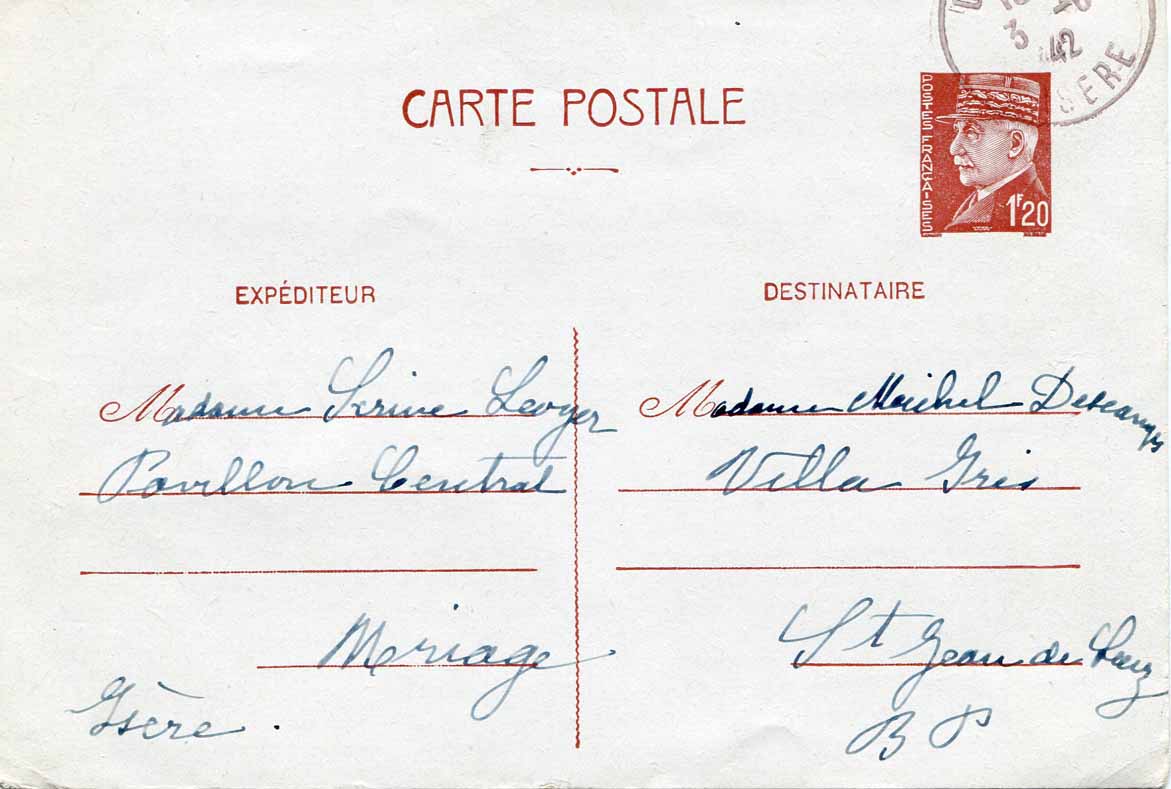 3 42
SERE
CARTE POSTALE
POSTES FRANÇAISES
1F20
EXPÉDITEUR
Madame Serine Leoyer
Pavillon Central
Meriage
Isère.
DESTINATAIRE
Madame Michel Descamps
Villa Gris
St Jean de Luz
BP